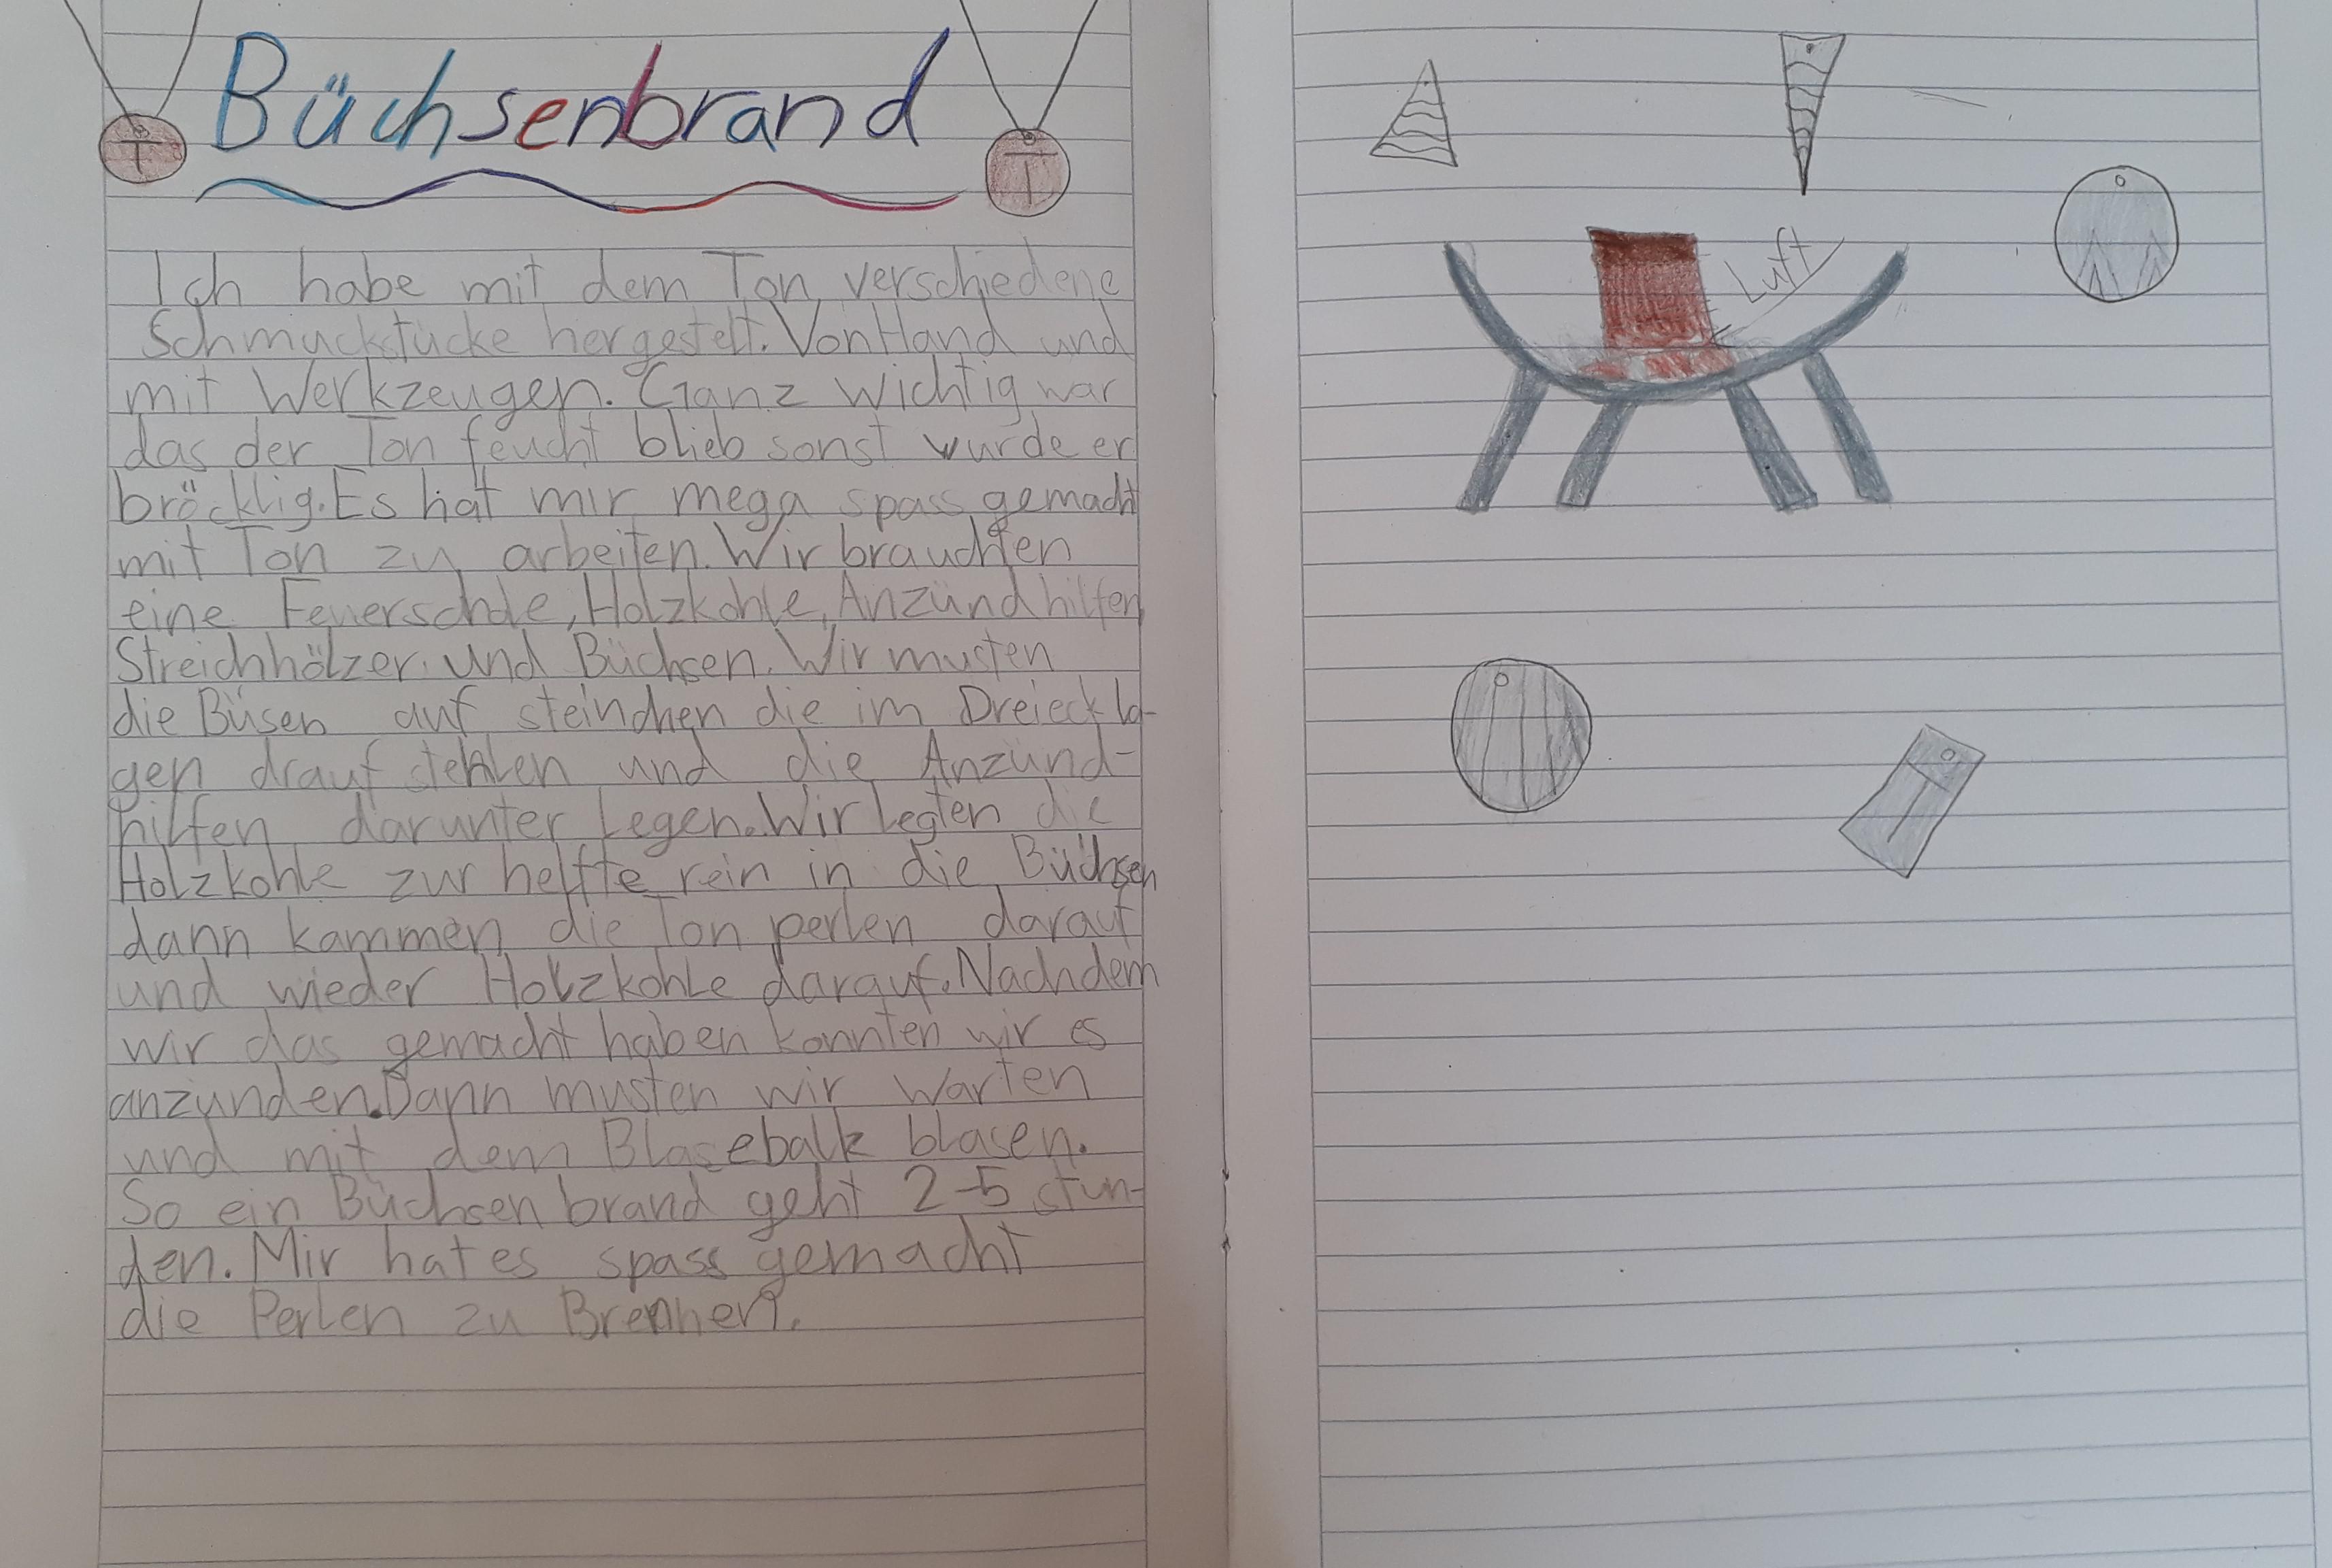 Büchsenbrand
Ich habe mit dem Ton verschiedene
Schmuckstücke hergestelt. Von Hand und
mit Werkzeugen. Ganz wichtig war
das der Ton feucht blieb sonst wurde er
bröcklig. Es hat mir mega spass gemacht
mit Ton zu arbeiten. Wir brauchten
eine Feuerschale, Holzkohle, Anzündhilfen
Streichhölzer und Büchsen. Wir musten
die Büsen auf steinchen die im Dreieck la-
gen drauf stehlen und die Anzünd-
hilfen darunter legen. Wir legten die
Holzkohle zur helfte rein in die Büchsen
dann kammen die Ton perlen darauf
und wieder Holzkohle darauf. Nachdem
wir das gemacht haben konnten wir es
anzünden. Dann musten wir warten
und mit dem Blasebalk blasen.
So ein Büchsenbrand geht 2-5 stun-
den. Mir hat es spass gemacht
die Perlen zu Brennen.
Luft